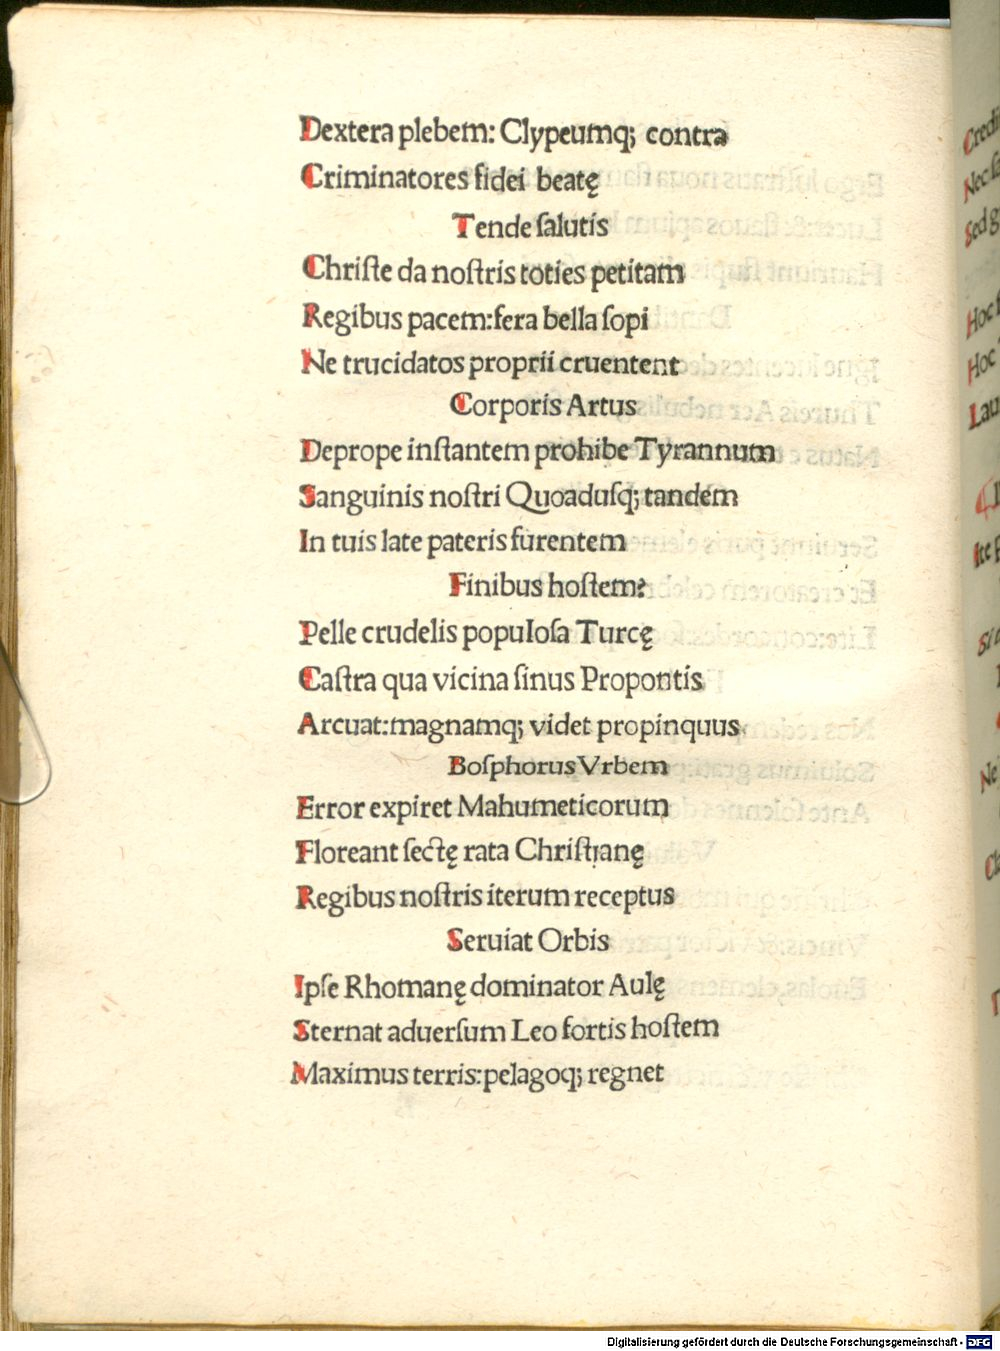 Dextera plebem: Clypeumq; contra
Criminatores fidei beatę
Tende ſalutis
Chriſte da noſtris toties petitam
Regibus pacem:fera bella ſopi
Ne trucidatos proprii cruentent
Corporis Artus
Deprope inſtantem prohibe Tyrannum
Sanguinis noſtri Quoaduſq; tandem
In tuis late pateris furentem
Finibus hoſtem?
Pelle crudelis popuIoſa Turcę
Caſtra qua vicina ſinus Propontis
Arcuat:magnamq; videt propinquus
Boſphorus Vrbem
Error expiret Mahumeticorum
Floreant ſectę rata Chriſtianę
Regibus noſtris iterum receptus
Seruiat Orbis
Ipſe Rhomanę dominator Aulę
Sternat aduerſum Leo fortis hoſtem
Maximus terris:pelagoq; regnet
Hoc
Hoc
Digitalisierung gefördert durch die Deutsche Forschungsgemeinschaft - DFG